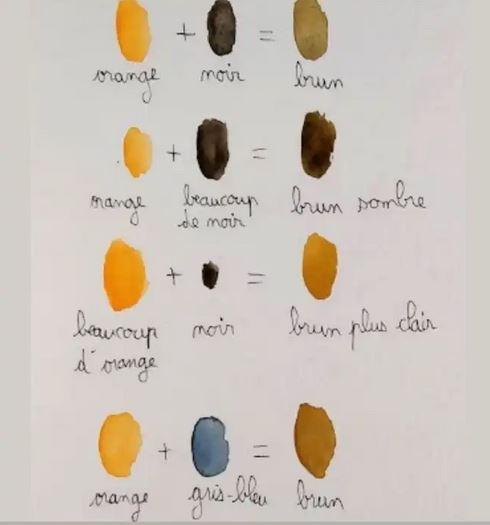 + =
orange noir brun
+ =
orange beaucoup brun sombre
de noir
+ =
beaucoup noir brun plus clair
d'orange
+ =
orange gris-bleu brun